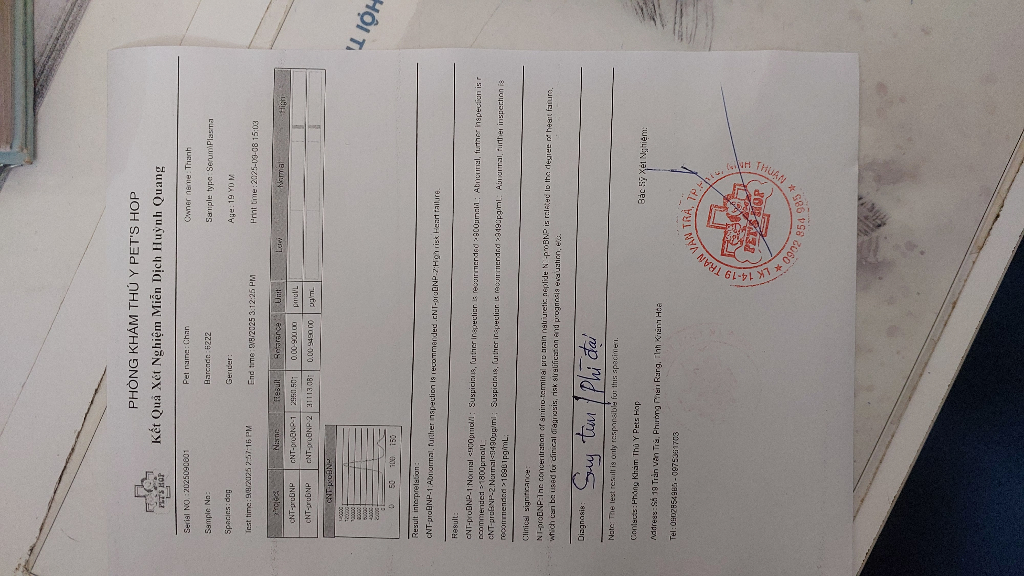 PHÒNG KHÁM THÚ Y PET'S HOP
Kết Quả Xét Nghiệm Miễn Dịch Huỳnh Quang
PET'S HOP
Serial NO.: 2025090801 Pet name: Chan Owner name: Thanh
Sample No.: Barcode: 6222 Sample type: Serum/Plasma
Species: dog Gender: Age: 19 Y0 M
Test time: 9/8/2025 2:57:16 PM End time: 9/8/2025 3:12:25 PM Print time: 2025-09-08 15:03
Project Name Result Reference Unit Low Normal High
cNT-proBNP cNT-proBNP-1 0.00-900.00 pmol/L
cNT-proBNP cNT-proBNP-2 0.00-5490.00 pg/mL
cNT-proBNP
0 50 100 150
Result interpretation:
cNT-proBNP-1:Abnormal, further inspection is recommended. cNT-proBNP-2:High risk Heart failure.
Result:
cNT-proBNP-1:Normal <900pmol/l ; Suspicious, further inspection is recommended >900pmol/l ; Abnormal, further inspection is r
ecommended >1800pmol/L;
cNT-proBNP-2:Normal<5490pg/ml ; Suspicious, further inspection is recommended >5490pg/mL ; Abnormal, further inspection is
recommended pg/mL;
Clinical significance:
NT-proBNP:The concentration of amino-terminal pro brain natriuretic peptide NT-proBNP is related to the degree of heart failure,
which can be used for clinical diagnosis, risk stratification and prognosis evaluation, etc.
Diagnosis: Suy tim / Phì đại
Note: The test result is only responsible for this specimen.
Contacts: Phòng Khám Thú Y Pets Hop
Address: Số 19 Trần Văn Trà, Phường Phan Rang, Tỉnh Khánh Hòa
Bác Sỹ Xét Nghiệm:
LK 14-19 TRẦN VĂN TRÀ, TP. NINH THUẬN ★ 0902 854 985 ★
PET'S HOP